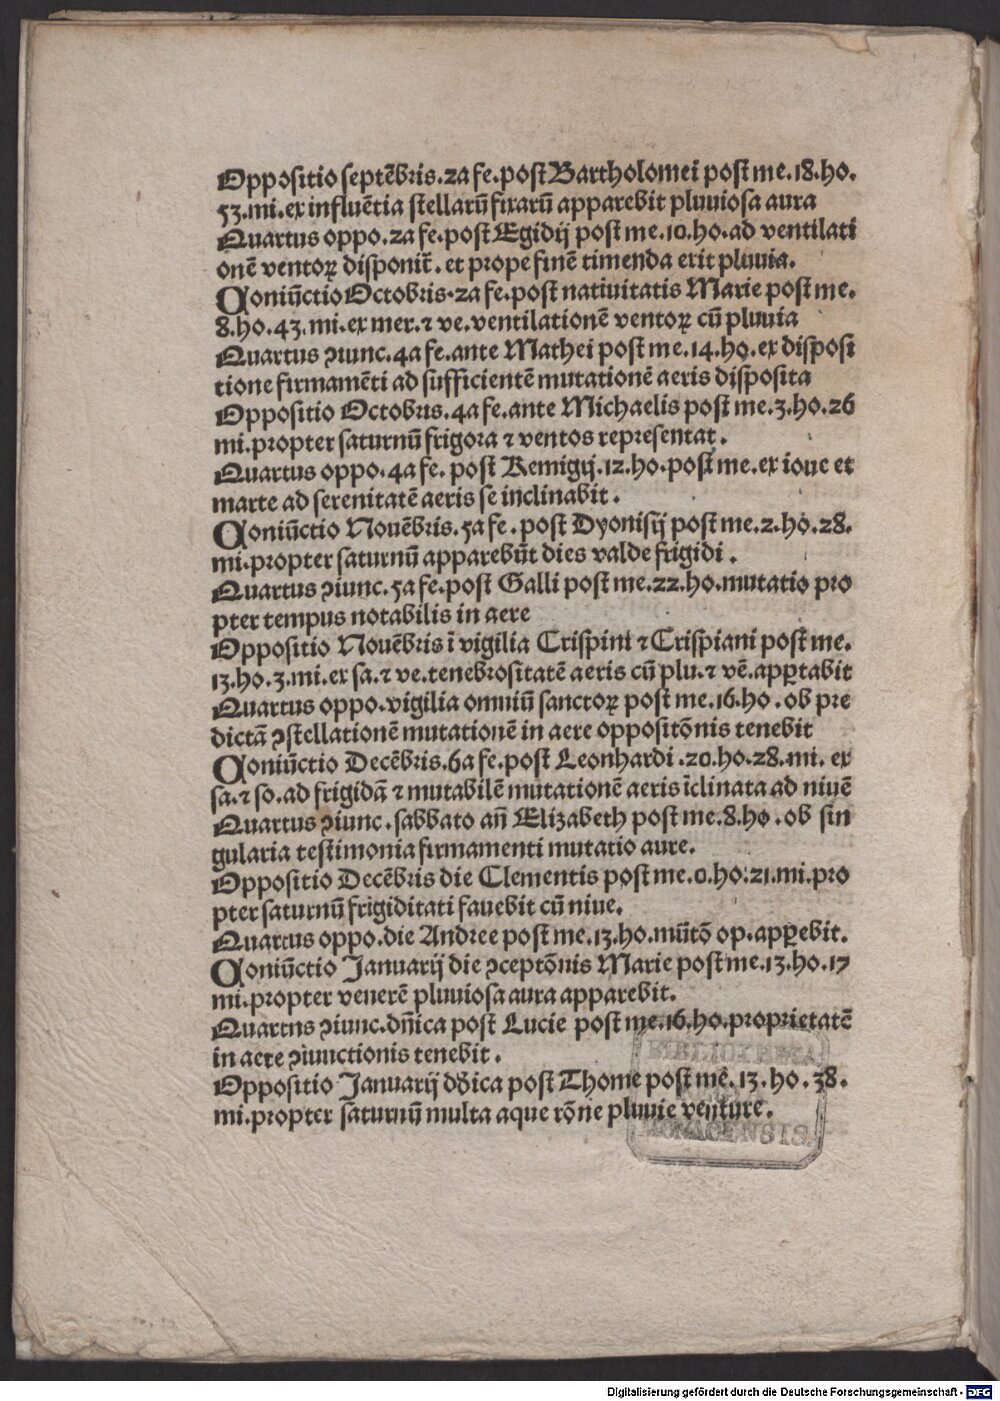 Oppositio septēbris.2a fe.post Bartholomei post me.18.ho.
53.mi.ex influētia stellarū fixarū apparebit pluuiosa aura
Quartus oppo.2a fe.post Egidij post me.10.ho.ad ventilati
onē ventoꝝ disponit̄.et prope finē timenda erit pluuia.
Coniūctio Octobris.2a fe.post natiuitatis Marie post me.
8.ho.43.mi.ex mer.⁊ ve.ventilationē ventoꝝ cū pluuia
Quartus ꝯiunc.4a fe.ante Mathei post me.14.ho.ex disposi
tione firmamēti ad sufficientē mutationē aeris disposita
Oppositio Octobris.4a fe.ante Michaelis post me.3.ho.26
mi.propter saturnū frigora ⁊ ventos representat.
Quartus oppo.4a fe.post Remigij.12.ho.post me.ex ioue et
marte ad serenitatē aeris se inclinabit.
Coniūctio Nouēbris.5a fe.post Dyonisij post me.2.ho.28.
mi.propter saturnū apparebūt dies valde frigidi.
Quartus ꝯiunc.5a fe.post Galli post me.22.ho.mutatio pro
pter tempus notabilis in aere
Oppositio Nouēbris ī vigilia Crispini ⁊ Crispiani post me.
13.ho.3.mi.ex sa.⁊ ve.tenebrositatē aeris cū plu.⁊ vē.apꝑtabit
Quartus oppo.vigilia omniū sanctoꝝ post me.16.ho.ob pre
dictā ꝯstellationē mutationē in aere oppositōnis tenebit
Coniūctio Decēbris.6a fe.post Leonhardi.20.ho.28.mi.ex
sa.⁊ so.ad frigidā ⁊ mutabilē mutationē aeris īclinata ad niuē
Quartus ꝯiunc.sabbato añ Elizabeth post me.8.ho.ob sin
gularia testimonia firmamenti mutatio aure.
Oppositio Decēbris die Clementis post me.0.ho.21.mi.pro
pter saturnū frigiditati fauebit cū niue.
Quartus oppo.die Andree post me.13.ho.mūtō op.apꝑebit.
Coniūctio Januarij die ꝯceptōnis Marie post me.13.ho.17
mi.propter venerē pluuiosa aura apparebit.
Quartns ꝯiunc.dñica post Lucie post me.16.ho.proprietatē
in aere ꝯiunctionis tenebit.
Oppositio Januarij dñica post Thome post me.13.ho.38.
mi.propter saturnū multa aque rōne pluuie venture.
BIBLIOTHECA
REGIA
MONACENSIS.
Digitalisierung gefördert durch die Deutsche Forschungsgemeinschaft - DFG